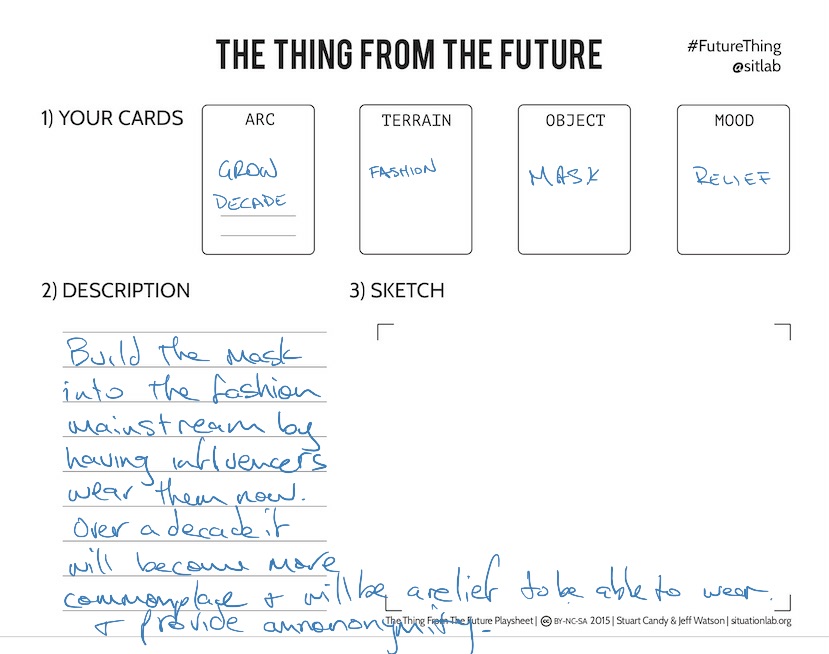 THE THING FROM THE FUTURE
#FutureThing
@sitlab
1) YOUR CARDS
ARC
GROW
DECADE
TERRAIN
FASHION
OBJECT
MASK
MOOD
RELIEF
2) DESCRIPTION
Build the mask
into the fashion
mainstream by
having influencers
wear them now.
Over a decade it
will become more
commonplace & will be a relief to be able to wear.
& provide annononymity.
3) SKETCH
The Thing From The Future Playsheet | cc BY-NC-SA 2015 | Stuart Candy & Jeff Watson | situationlab.org